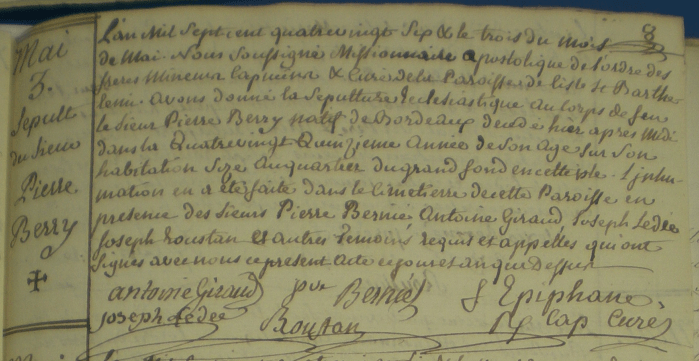 8
Mai
3.
Sepult
du Sieur
Pierre
Berry
L'an Mil Sept cent quatrevingt Six & le trois du mois
de Mai. Nous Soussigné Missionnaire apostolique de l'ordre des
freres Mineurs Capucins & Curé de la Paroisse de l'isle St Barthe
lemi. avons donné la Sepulture Ecclesiastique au corps de feu
le Sieur Pierre Berry natif de Bordeaux decedé hier après Midi
dans la Quatrevingt Quinzieme Année de Son Age sur Son
habitation Size au quartier du grand fond en cette isle. L'inhu-
mation en a été faite dans le Cimetierre de cette Paroisse en
presence des Sieurs Pierre Bernié Antoine Giraud, Joseph Ledée
Joseph Roustan et autres Temoins requis et appelles qui ont
Signés avec nous ce present Acte ce jour et an que Dessus
antoine Giraud pre Berniés f Epiphane
Joseph Ledée Roustan Cap Curé